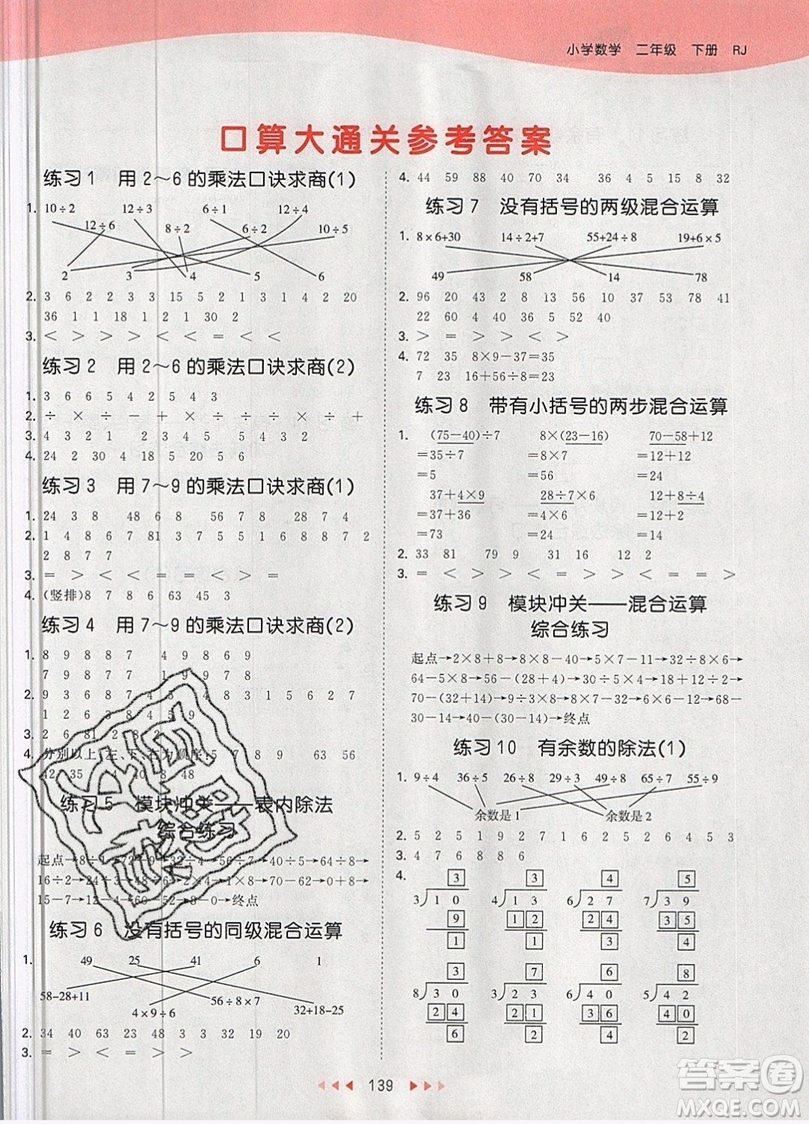 小学数学 二年级 下册 RJ
口算大通关参考答案
练习1 用2～6的乘法口诀求商(1)
1. 10÷2 12÷3 6÷1 12÷4
12÷6 8÷2 6÷2 10÷5
2 3 4 5 6
2. 3 6 2 2 3 3 15 5 2 1 3 1 4 2 20
36 1 1 18 1 2 1 30 2
3. < > > > < < = < <
练习2 用2～6的乘法口诀求商(2)
1. 3 6 6 5 4 2 5 4 3
3. 4 3 2 1 2 3 4 5 4 3 2 1
4. 24 2 30 4 18 5 20 5 6
练习3 用7～9的乘法口诀求商(1)
1. 24 3 8 48 6 8 56 7 8 28 7 4
2. 1 4 8 6 7 8 7 1 9 3 9 8 8 1 7 7
2 8 7 7
3. = > > < < = = > =
4. (竖排)8 7 8 6 63 45 3
练习4 用7～9的乘法口诀求商(2)
1. 8 9 8 8 7 4 9 8 6 9
7 9 1 9 9 8 7 8
1 2 6 3 8 4 5 8 9
练习5 模块冲关——表内除法
综合练习
练习6 没有括号的同级混合运算
1. 49 25 41 6 1
58-28+11 56÷8×7
4×9÷6 32+18-25
2. 34 40 63 0 48 3 3 32 19 20
3. = > < < > = > > <
4. 44 59 88 40 70 34 36 4 5 15 8 32
练习7 没有括号的两级混合运算
1. 8×6+30 14÷2+7 55+24÷8 19+6×5
49 58 14 78
2. 96 20 43 2 8 13 56 10 37 35 41
22 60 4 40 8 36 5 52 40
3. > = > > < >
4. 72 35 8×9-37=35
7 23 16+56÷8=23
练习8 带有小括号的两步混合运算
1. (75-40)÷7 8×(23-16) 70-58+12
=35÷7 =8×7 =12+12
=5 =56 =24
37+4×9 28÷7×6 12+8÷4
=37+36 =4×6 =12+2
=73 =24 =14
2. 33 81 79 9 31 16 12 2
3. < = < > = < > < > < >
练习9 模块冲关——混合运算
综合练习
起点→2×8+8→8×8-40→5×7-11→
64-5×8→(28+4)÷4→50-5×6→
70-(34+6)→9÷3×8→5×7-30→
30-10-14→40-(30-14)→终点
练习10 有余数的除法(1)
1. 9÷4 36÷5 26÷5 29÷3 49÷8 65÷7 55÷9
余数是1 余数是2
2. 5 2 5 1 9 2 7 1 6 2 5 2 6 4 5 3
3. 4 7 6 8 8 6
4. 3 3 4 5
3 10 4 13 6 27 7 39
9 12 24 35
1 1 3 4
3 7 8 6
8 30 3 23 5 42 7 44
24 21 40 42
6 2 2 2
139
答案圈
MXQE.COM